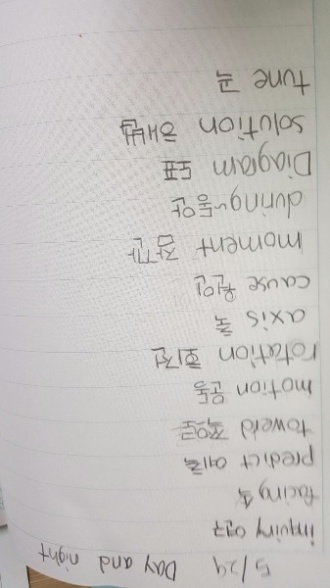 5/29 Day and night
inquiry 연구
facing 축
predict 예측
toweld 쪽으로
motion 운동
rotation 회전
axis 축
cause 원인
moment 잠깐
during~동안
Diagram 도표
solution 해법
tune 곡